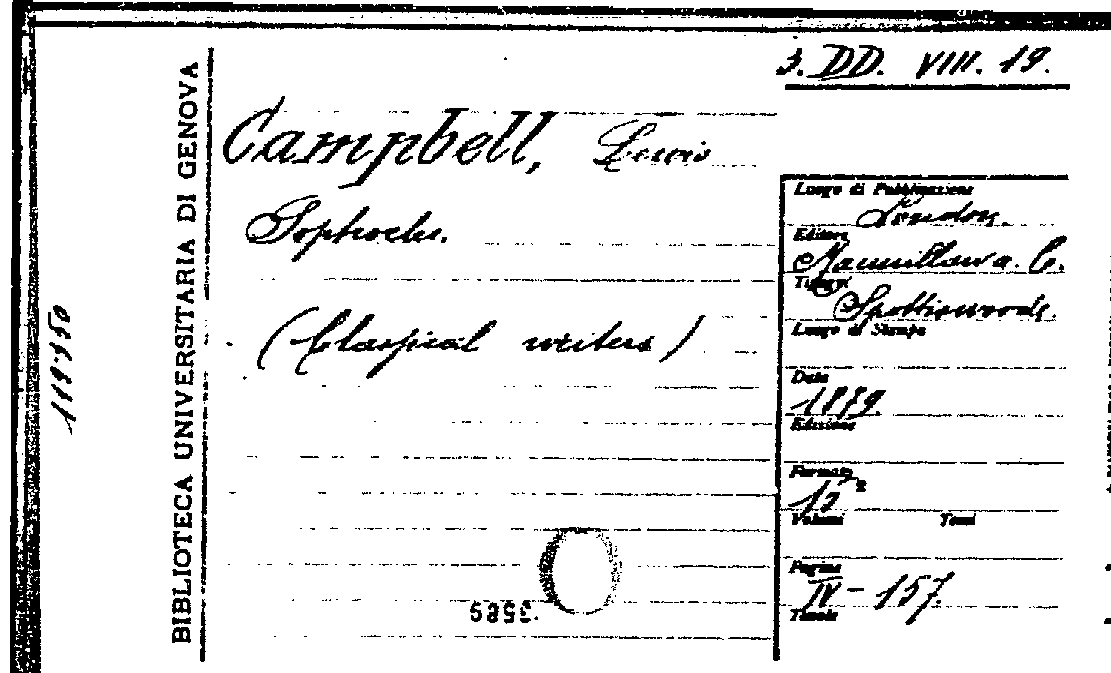 3. DD. VIII. 19.
BIBLIOTECA UNIVERSITARIA DI GENOVA
Campbell, Lewis
Sophocles.
(Classical writers)
Luogo di Pubblicazione
London.
Editore
Macmillan a. C.
Tipogr.
Spottiswoode.
Luogo di Stampa
Data
1879.
Edizione
Formato
12°
Volumi Tomi
Pagine
IV - 157.
Tavole